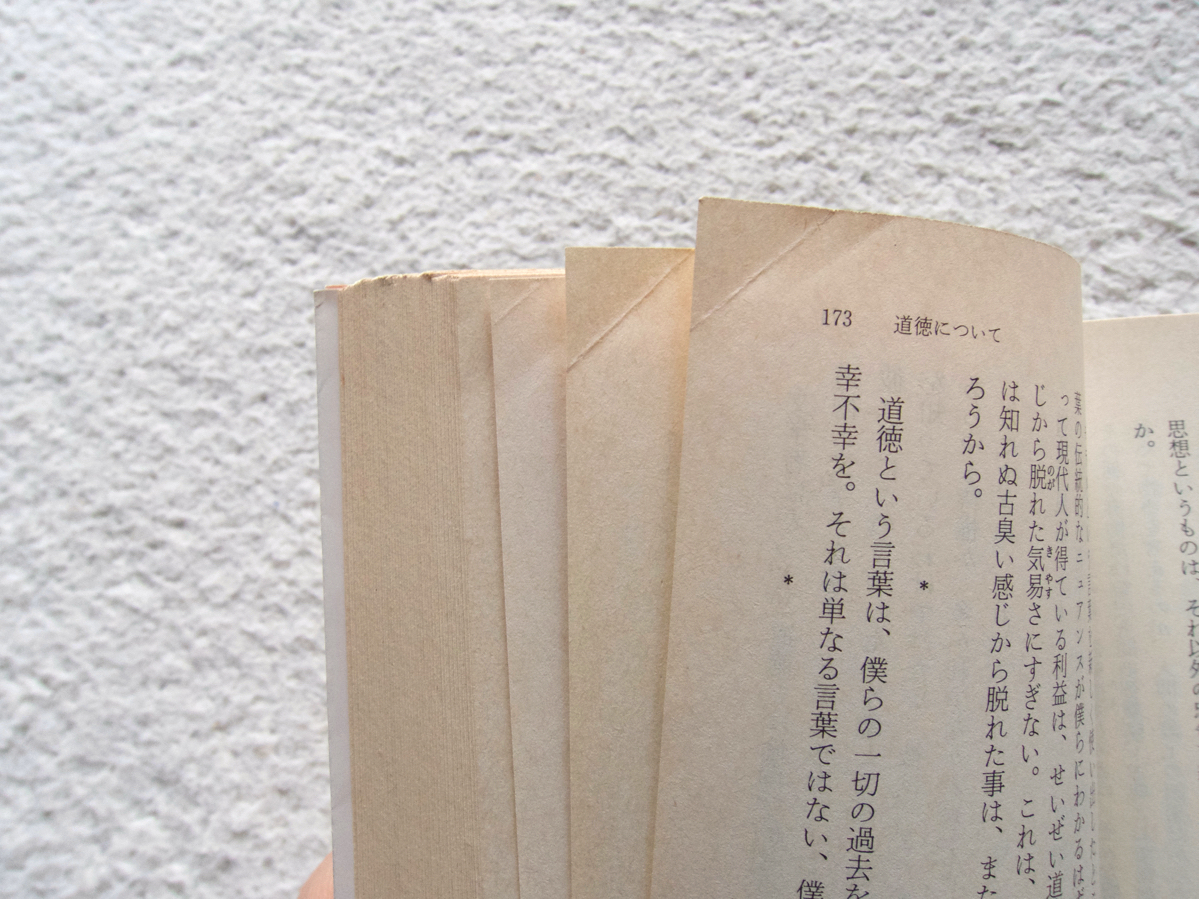 思想というものは、それ以外の
か。
173 道徳について
葉の伝統的なニュアンスが僕らにわかるはど
って現代人が得ている利益は、せいぜい道
じから脱れた気易さにすぎない。これは、
は知れぬ古臭い感じから脱れた事は、また
ろうから。
*
道徳という言葉は、僕らの一切の過去を
幸不幸を。それは単なる言葉ではない、僕
*